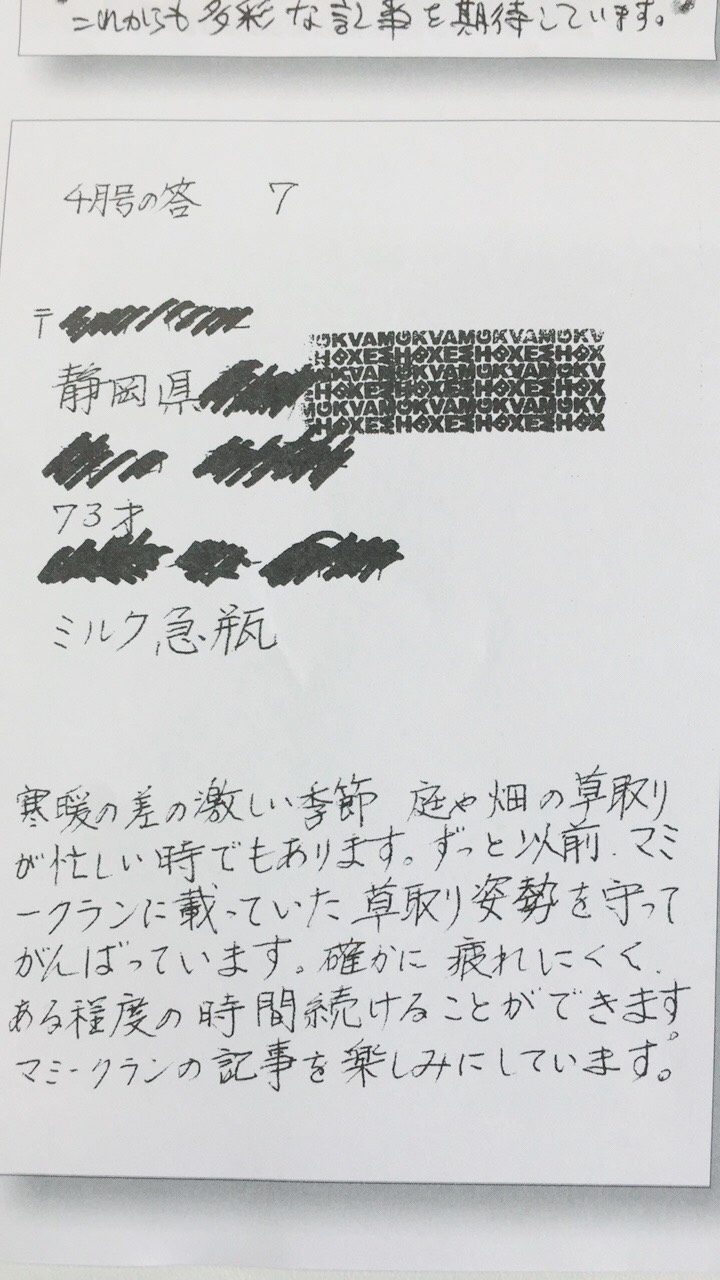 これからも多彩な記事を期待しています。
4月号の答 7
〒
静岡県
GKVAMGKVAMGKVAMGKV
HOXEMHOXEMHOXEMHOX
GKVAMGKVAMGKVAMGKV
HOXEMHOXEMHOXEMHOX
MGKVAMGKVAMGKVAMGKV
HOXEMHOXEMHOXEMHOX
73才
ミルク急瓶
寒暖の差の激しい季節 庭や畑の草取り
が忙しい時でもあります。ずっと以前、マミ
ークランに載っていた草取り姿勢を守って
がんばっています。確かに疲れにくく、
ある程度の時間続けることができます。
マミークランの記事を楽しみにしています。